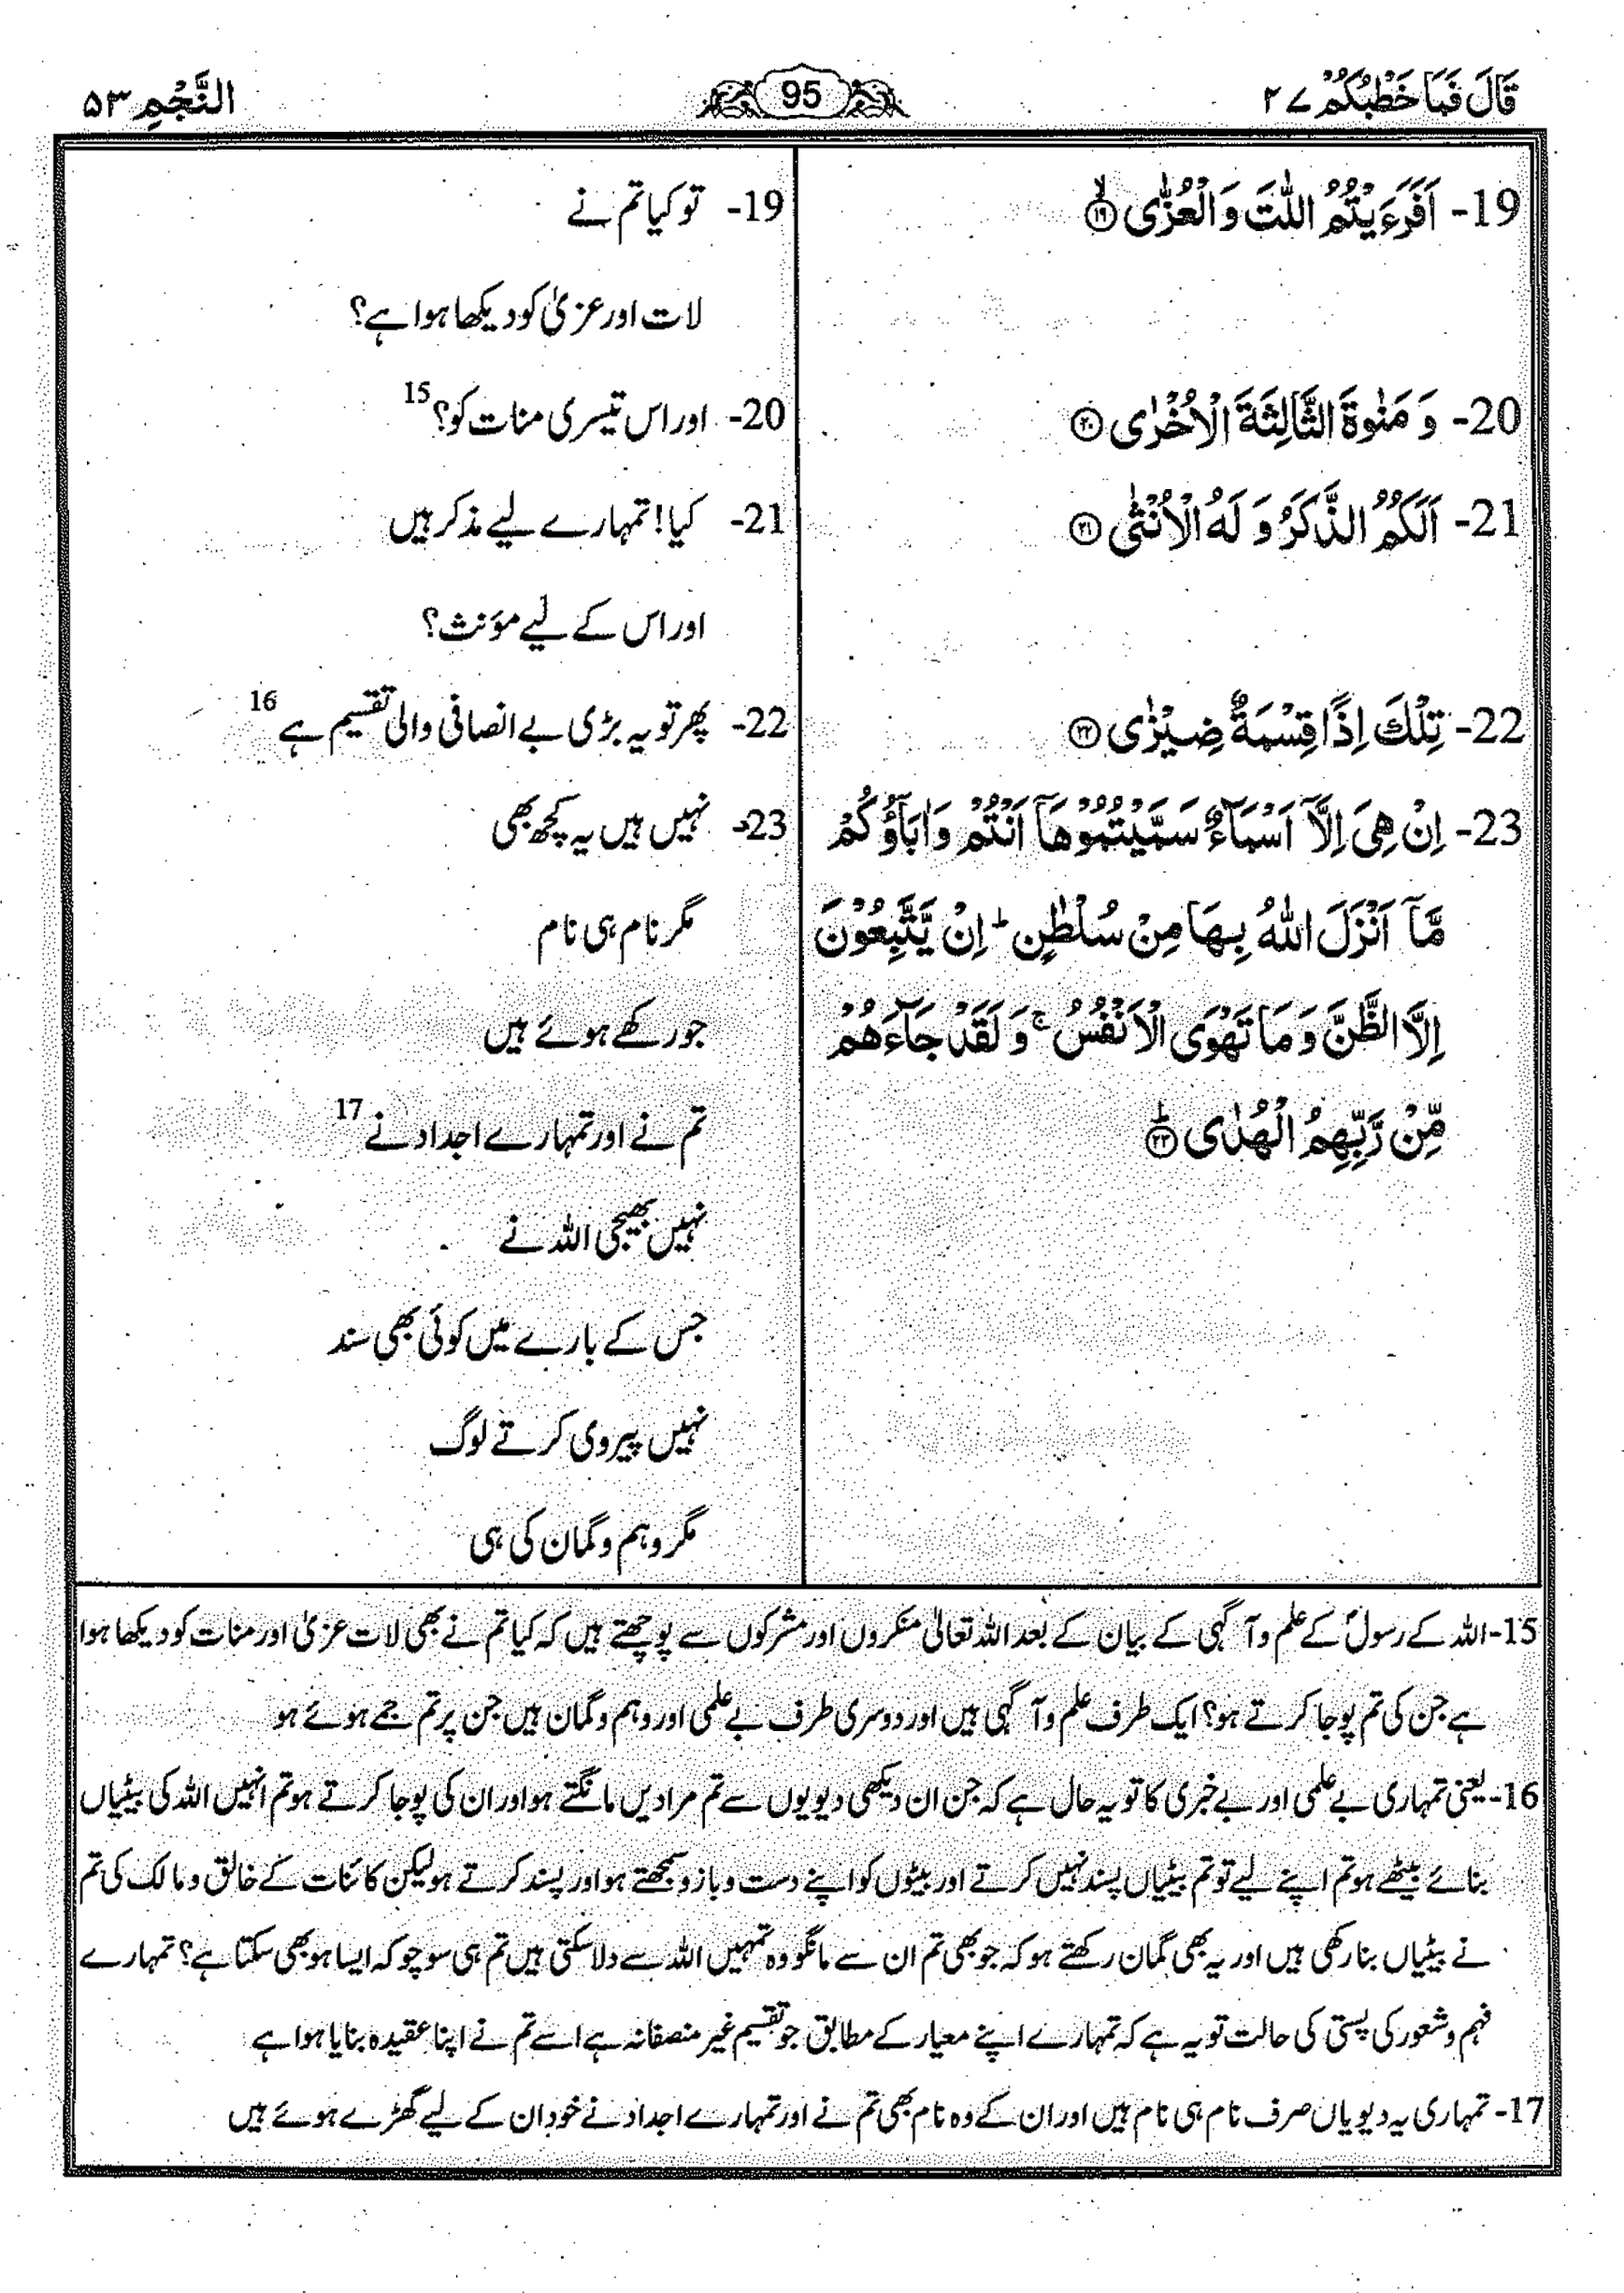 قَالَ فَمَا خَطْبُكُمْ ٢٧
95
النَّجْمِ ٥٣
19- اَفَرَءَيْتُمُ اللّٰتَ وَالْعُزّٰى ۙ‏﴿۱۹﴾
20- وَ مَنٰوةَ الثَّالِثَةَ الْاُخْرٰى ﴿۲۰﴾
21- اَلَكُمُ الذَّكَرُ وَ لَهُ الْاُنْثٰى ﴿۲۱﴾
22- تِلْكَ اِذًا قِسْمَةٌ ضِيْزٰى ﴿۲۲﴾
23- اِنْ هِىَ اِلَّاۤ اَسْمَآءٌ سَمَّيْتُمُوْهَاۤ اَنْتُمْ وَاٰبَآؤُكُمْ
مَّاۤ اَنْزَلَ اللّٰهُ بِهَا مِنْ سُلْطٰنٍ ؕ اِنْ يَّتَّبِعُوْنَ
اِلَّا الظَّنَّ وَ مَا تَهْوَى الْاَنْفُسُ ۚ وَ لَقَدْ جَآءَهُمْ
مِّنْ رَّبِّهِمُ الْهُدٰى ؕ﴿۲۳﴾
19- تو کیا تم نے
لات اور عزیٰ کو دیکھا ہوا ہے؟
20- اور اس تیسری منات کو؟ 15
21- کیا! تمہارے لیے مذکر ہیں
اور اس کے لیے مؤنث؟
22- پھر تو یہ بڑی بے انصافی والی تقسیم ہے 16
23- نہیں ہیں یہ کچھ بھی
مگر نام ہی نام
جو رکھے ہوئے ہیں
تم نے اور تمہارے اجداد نے 17
نہیں بھیجی اللہ نے
جس کے بارے میں کوئی بھی سند
نہیں پیروی کرتے لوگ
مگر وہم و گمان کی ہی
15- اللہ کے رسولؐ کے علم و آگہی کے بیان کے بعد اللہ تعالیٰ منکروں اور مشرکوں سے پوچھتے ہیں کہ کیا تم نے بھی لات عزیٰ اور منات کو دیکھا ہوا
ہے جن کی تم پوجا کرتے ہو؟ ایک طرف علم و آگہی ہیں اور دوسری طرف بے علمی اور وہم و گمان ہیں جن پر تم جمے ہوئے ہو
16- یعنی تمہاری بے علمی اور بے خبری کا تو یہ حال ہے کہ جن ان دیکھی دیویوں سے تم مرادیں مانگتے ہو اور ان کی پوجا کرتے ہو تم انہیں اللہ کی بیٹیاں
بنائے بیٹھے ہو تم اپنے لیے تو تم بیٹیاں پسند نہیں کرتے اور بیٹوں کو اپنے دست و بازو سمجھتے ہو اور پسند کرتے ہو لیکن کائنات کے خالق و مالک کی تم
نے بیٹیاں بنا رکھی ہیں اور یہ بھی گمان رکھتے ہو کہ جو بھی تم ان سے مانگو وہ تمہیں اللہ سے دلا سکتی ہیں تم ہی سوچو کہ ایسا ہو بھی سکتا ہے؟ تمہارے
فہم و شعور کی پستی کی حالت تو یہ ہے کہ تمہارے اپنے معیار کے مطابق جو تقسیم غیر منصفانہ ہے اسے تم نے اپنا عقیدہ بنایا ہوا ہے
17- تمہاری یہ دیویاں صرف نام ہی نام ہیں اور ان کے وہ نام بھی تم نے اور تمہارے اجداد نے خود ان کے لیے گھڑے ہوئے ہیں